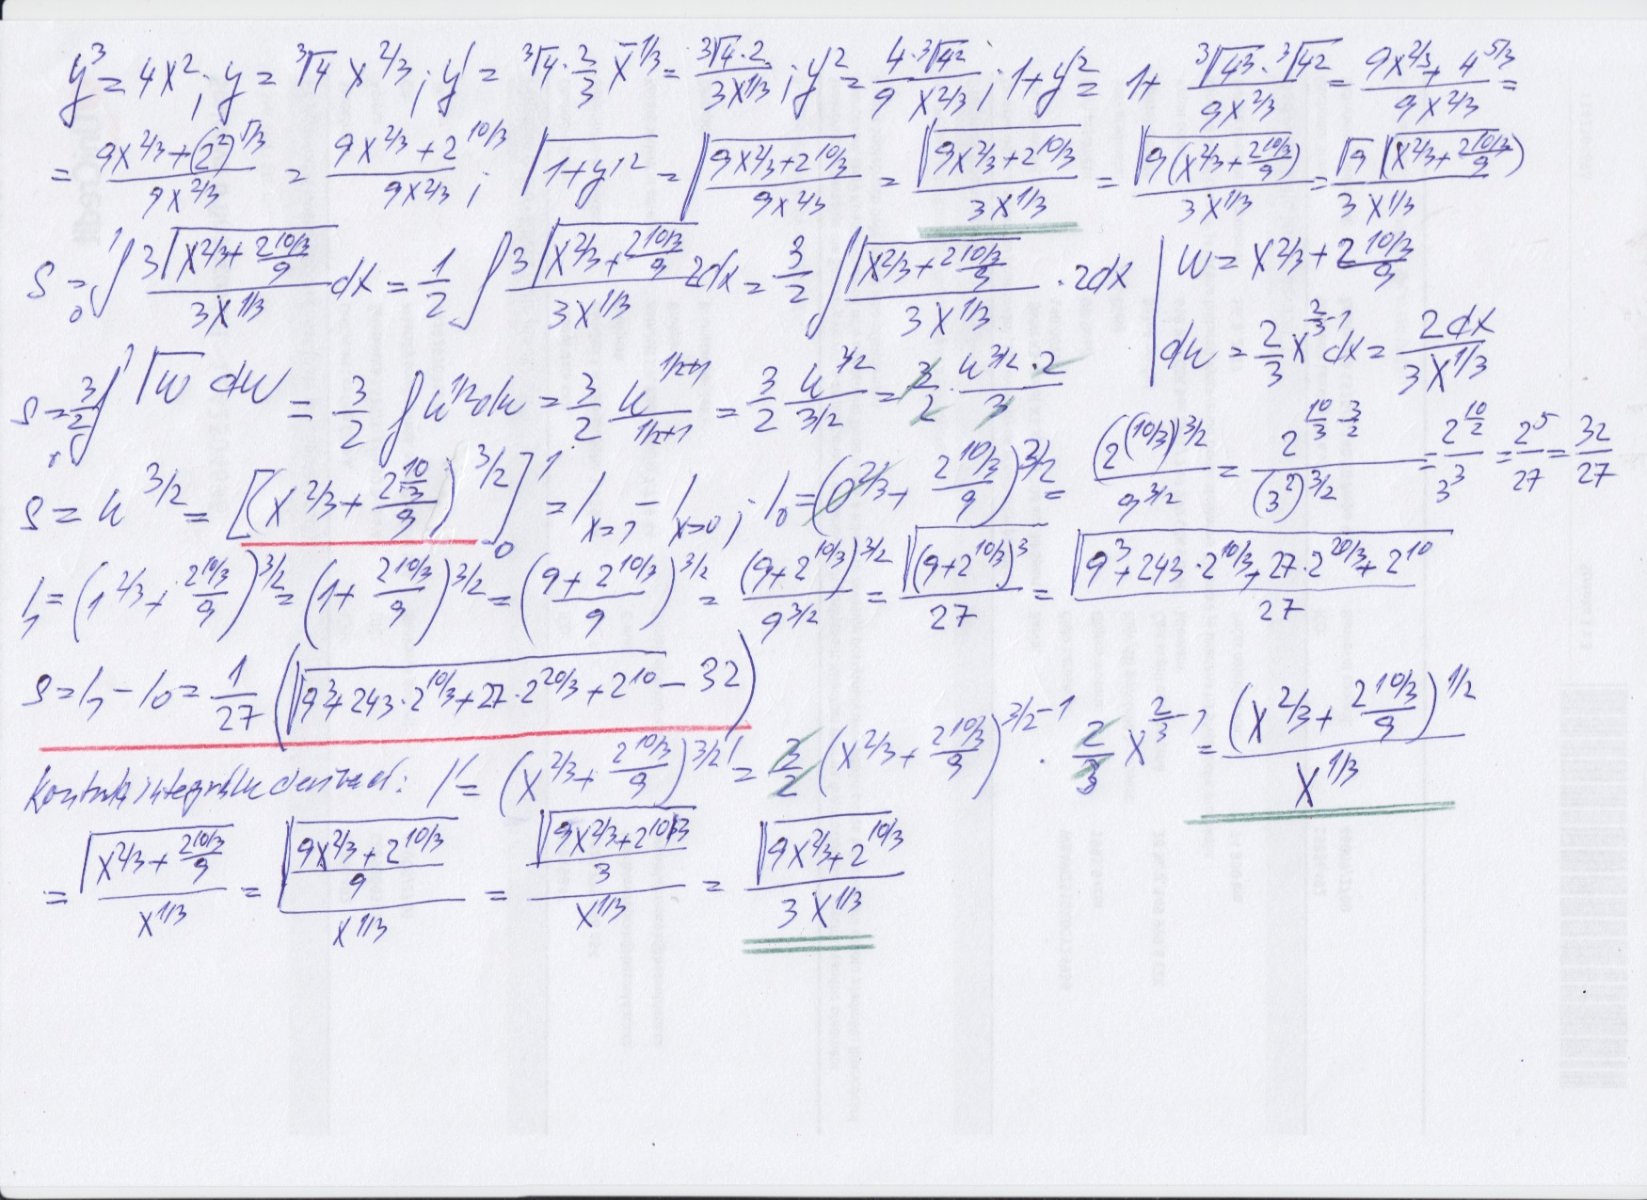 y³ = 4x² ; y = ∛4 x^2/3 ; y' = ∛4 · 2/3 x^-1/3 = ∛4·2 / 3x^1/3 ; y'² = 4·∛4² / 9 x^2/3 ; 1+y'² = 1+ ∛4³·∛4² / 9x^2/3 = 9x^2/3 + 4^5/3 / 9x^2/3 =
= 9x^2/3 + (2²)^5/3 / 9x^2/3 = 9x^2/3 + 2^10/3 / 9x^2/3 ; √(1+y'²) = √(9x^2/3 + 2^10/3 / 9x^2/3) = √(9x^2/3 + 2^10/3) / 3x^1/3 = √(9(x^2/3 + 2^10/3 / 9)) / 3x^1/3 = √9 √(x^2/3 + 2^10/3 / 9) / 3x^1/3
S = ₀∫¹ 3√(x^2/3 + 2^10/3 / 9) / 3x^1/3 dx = 1/2 ∫ 3√(x^2/3 + 2^10/3 / 9) / 3x^1/3 2dx = 3/2 ∫ √(x^2/3 + 2^10/3 / 9) / 3x^1/3 · 2dx | u = x^2/3 + 2^10/3 / 9
du = 2/3 x^(2/3 -1) dx = 2dx / 3x^1/3
S = 3/2 ₀∫¹ √u du = 3/2 ∫ u^1/2 du = 3/2 u^(1/2+1) / 1/2+1 = 3/2 u^3/2 / 3/2 = 3/2 · u^3/2 · 2 / 3
S = u^3/2 = [(x^2/3 + 2^10/3 / 9)^3/2]₀¹ = I x=1 - I x=0 ; I₀ = (0^2/3 + 2^10/3 / 9)^3/2 = (2^(10/3))^3/2 / 9^3/2 = 2^(10/3 · 3/2) / (3²)^3/2 = 2^10/2 / 3³ = 2^5 / 27 = 32 / 27
I₁ = (1^2/3 + 2^10/3 / 9)^3/2 = (1 + 2^10/3 / 9)^3/2 = (9 + 2^10/3 / 9)^3/2 = (9 + 2^10/3)^3/2 / 9^3/2 = √((9+2^10/3)³) / 27 = √(9³ + 243·2^10/3 + 27·2^20/3 + 2^10) / 27
S = I₁ - I₀ = 1/27 (√(9³ + 243·2^10/3 + 27·2^20/3 + 2^10) - 32)
I' = (x^2/3 + 2^10/3 / 9)^3/2 ' = 3/2 (x^2/3 + 2^10/3 / 9)^(3/2 -1) · 2/3 x^(2/3 -1) = (x^2/3 + 2^10/3 / 9)^1/2 / x^1/3
= √(x^2/3 + 2^10/3 / 9) / x^1/3 = √(9x^2/3 + 2^10/3 / 9) / x^1/3 = √(9x^2/3 + 2^10/3) / 3 / x^1/3 = √(9x^2/3 + 2^10/3) / 3x^1/3